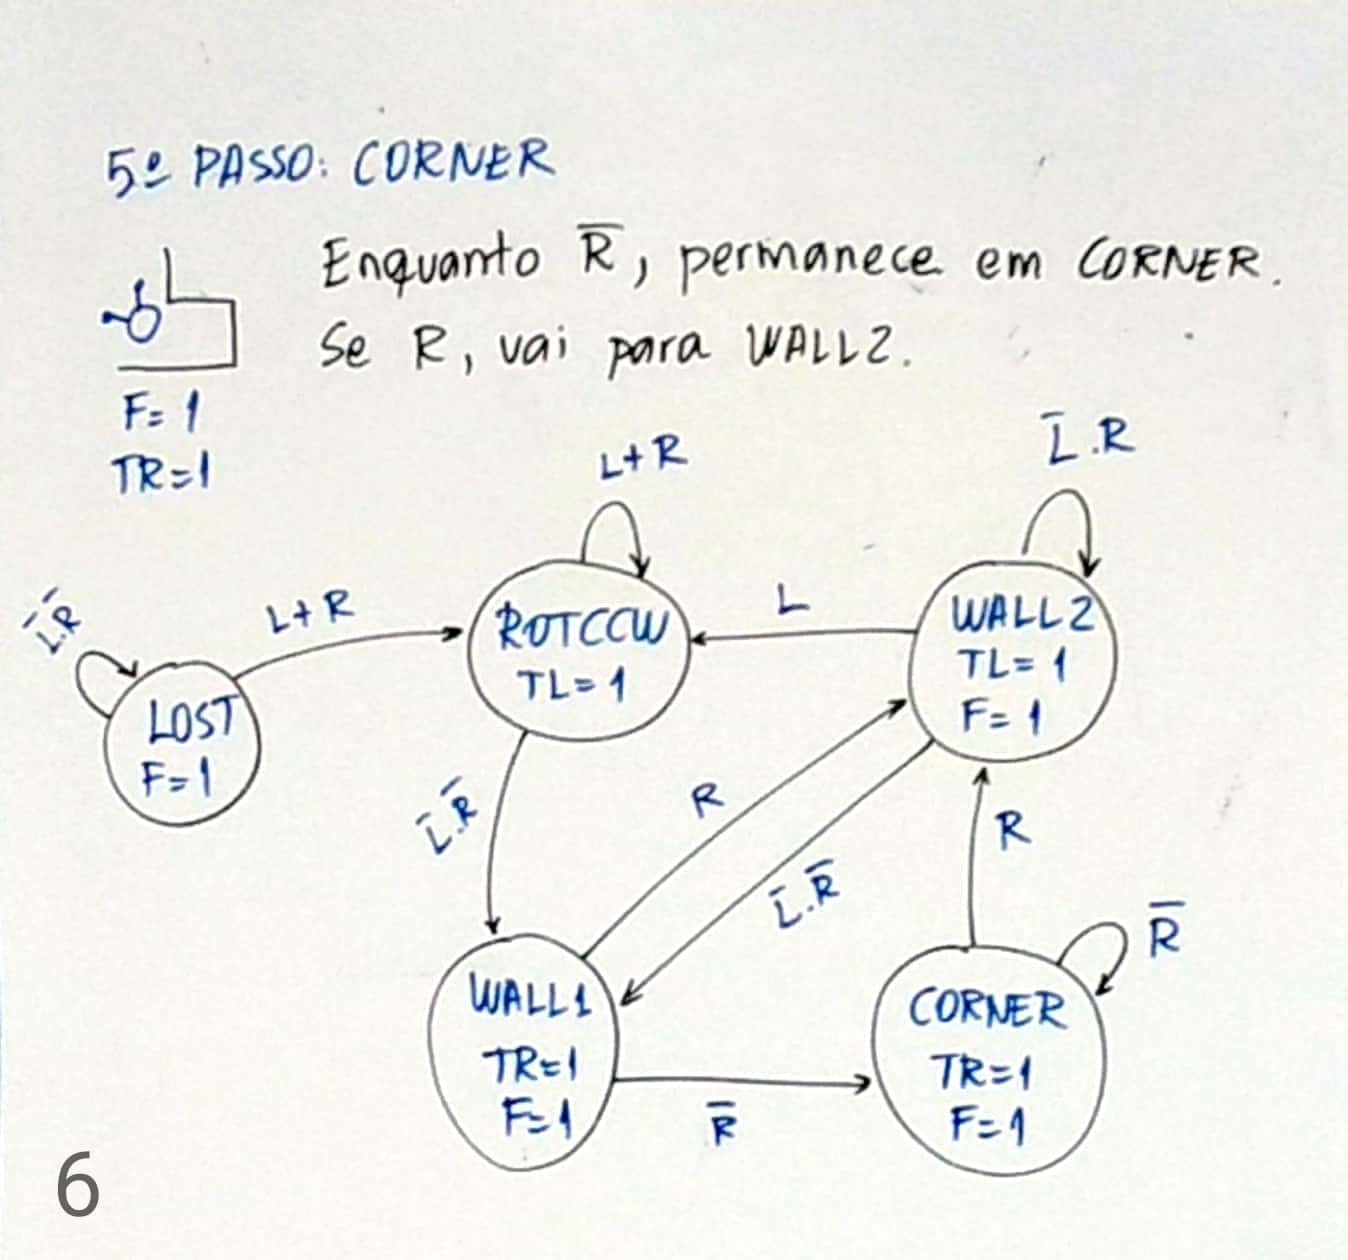 5º PASSO: CORNER
Enquanto R̅, permanece em CORNER.
Se R, vai para WALL2.
F=1
TR=1
L+R
L̅.R
L̅.R̅
L+R
ROTCCW
TL=1
L
WALL2
TL=1
F=1
LOST
F=1
L̅.R̅
R
L̅.R̅
R
R̅
WALL1
TR=1
F=1
R̅
CORNER
TR=1
F=1
6